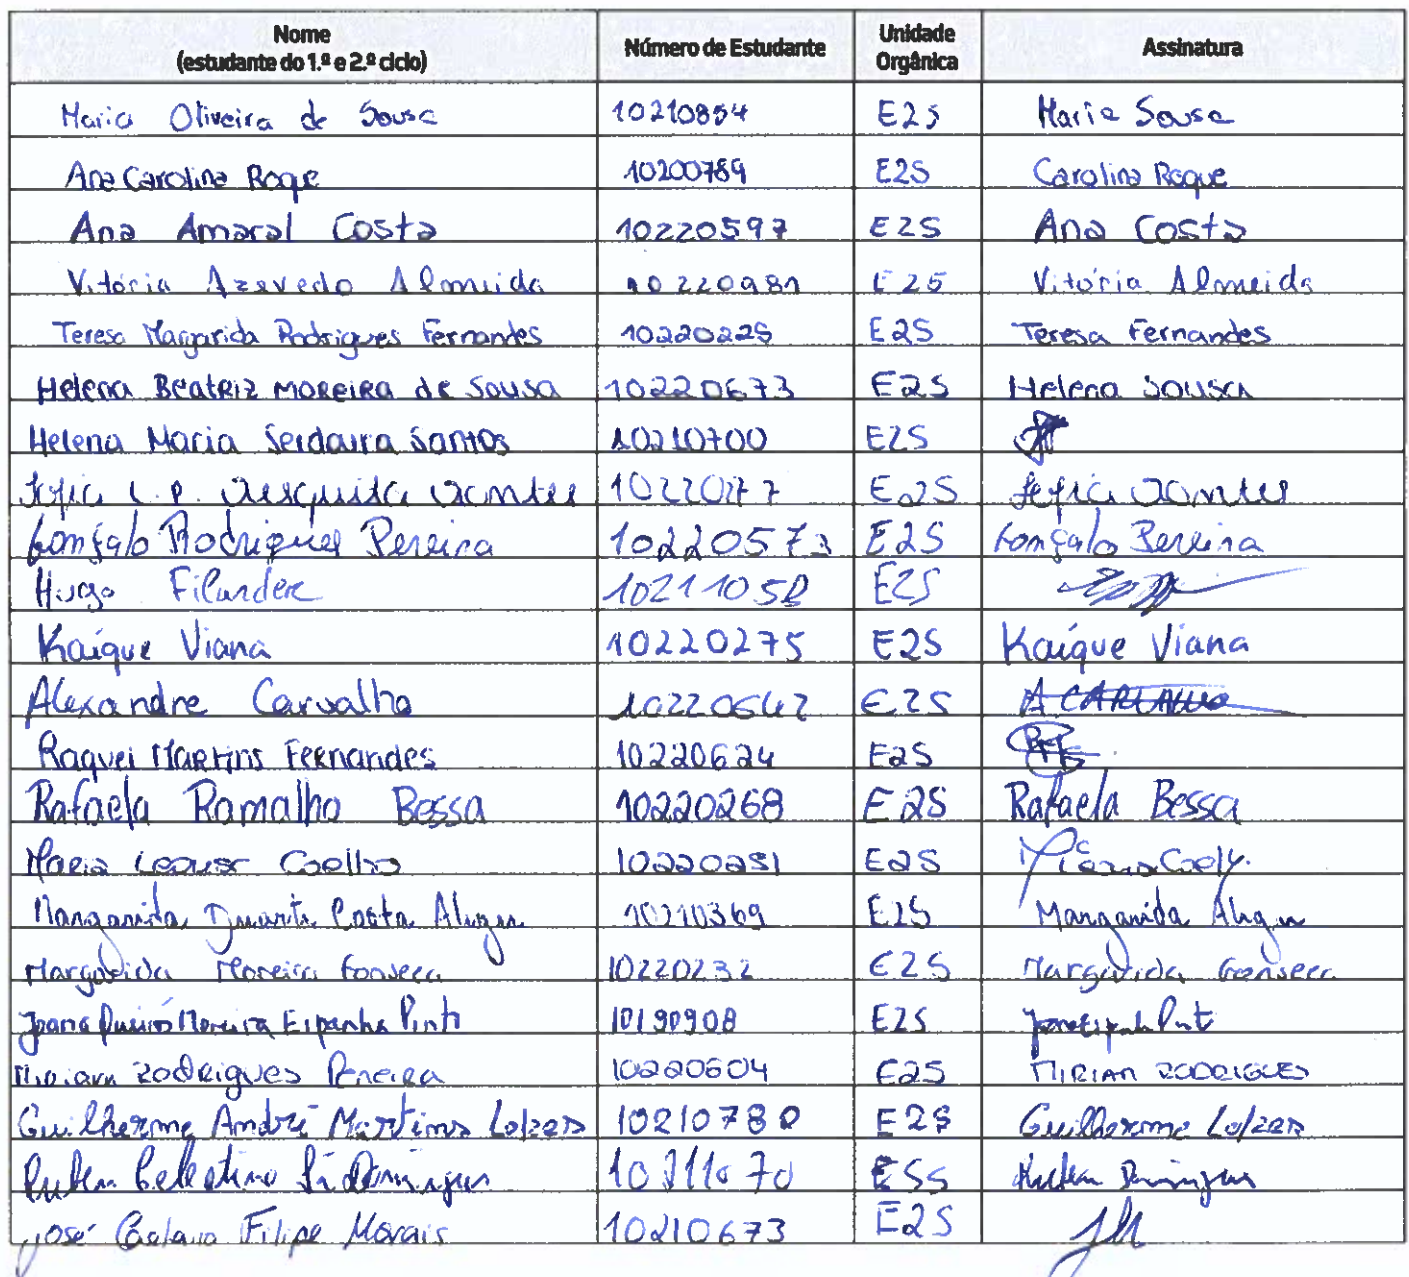 Nome Número de Estudante Unidade Assinatura
(estudante do 1.º e 2.º ciclo) Orgânica
Maria Oliveira de Sousa 10210854 E2S Maria Sousa
Ana Carolina Roque 10200789 E2S Carolina Roque
Ana Amaral Costa 10220597 E2S Ana Costa
Vitória Azevedo Almeida 10220981 E2S Vitória Almeida
Teresa Margarida Rodrigues Fernandes 10220225 E2S Teresa Fernandes
Helena Beatriz Moreira de Sousa 10220673 E2S Helena Sousa
Helena Maria Santos 10210700 E2S
E2S
Gonçalo Rodrigues Pereira 10220573 E2S Gonçalo Pereira
Hugo E2S
Kaíque Viana 10220275 E2S Kaíque Viana
Alexandre Carvalho 10220642 E2S A CARVALHO
Raquel Martins Fernandes 10220624 E2S
Rafaela Ramalho Bessa 10220268 E2S Rafaela Bessa
Maria Coelho 10220251 E2S
Margarida Duarte Costa 10210369 E2S Margarida
Margarida Moreira Fonseca 10220232 E2S Margarida Fonseca
Joana Queirós Moreira Espanha Pinto 10190908 E2S
Miriam Rodrigues Pereira 10220604 E2S MIRIAM RODRIGUES
Guilherme André Martins Lopes 10210780 E2S Guilherme Lopes
Ruben Celestino Sá Domingues ESS Ruben Domingues
José Filipe Morais 10210673 E2S